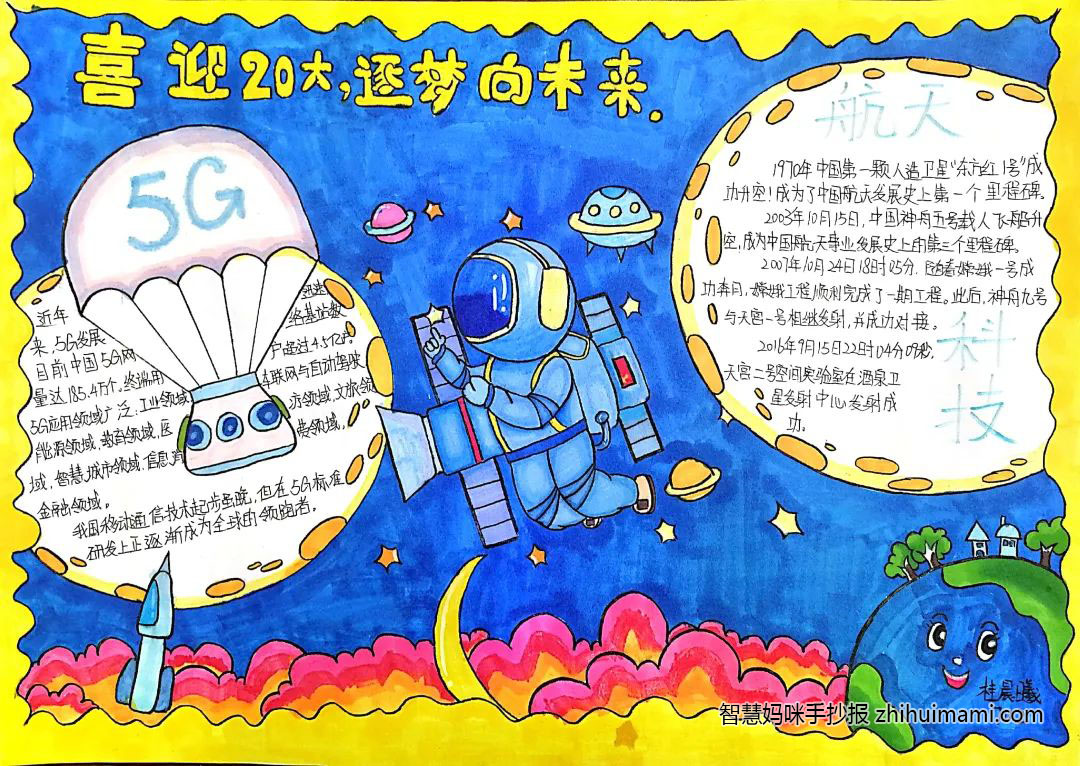 喜迎20大,逐梦向未来.
5G
近年
来,5G发展
目前中国5G网
络基站数
量达185.4万个,终端用
户超过4.5亿户
5G应用领域广泛:工业领域
车联网与自动驾驶
能源领域,教育领域,医
疗领域,文旅领
域,智慧城市领域,信息消
费领域,
金融领域。
我国移动通信技术起步虽晚,但在5G标准
研发上正逐渐成为全球的领跑者。
航天
1970年中国第一颗人造卫星“东方红1号”成
功升空!成为了中国航天发展史上第一个里程碑。
2003年10月15日,中国神舟五号载人飞船升
空,成为中国航天事业发展史上的第三个里程碑。
2007年10月24日18时05分.随着嫦娥一号成
功奔月,嫦娥工程顺利完成了一期工程。此后,神舟九号
与天宫一号相继发射,并成功对接。
2016年9月15日22时04分09秒,
天宫二号空间实验室在酒泉卫
星发射中心发射成
功.
科
技
桂晨曦
智慧妈咪手抄报 zhihuimami.com